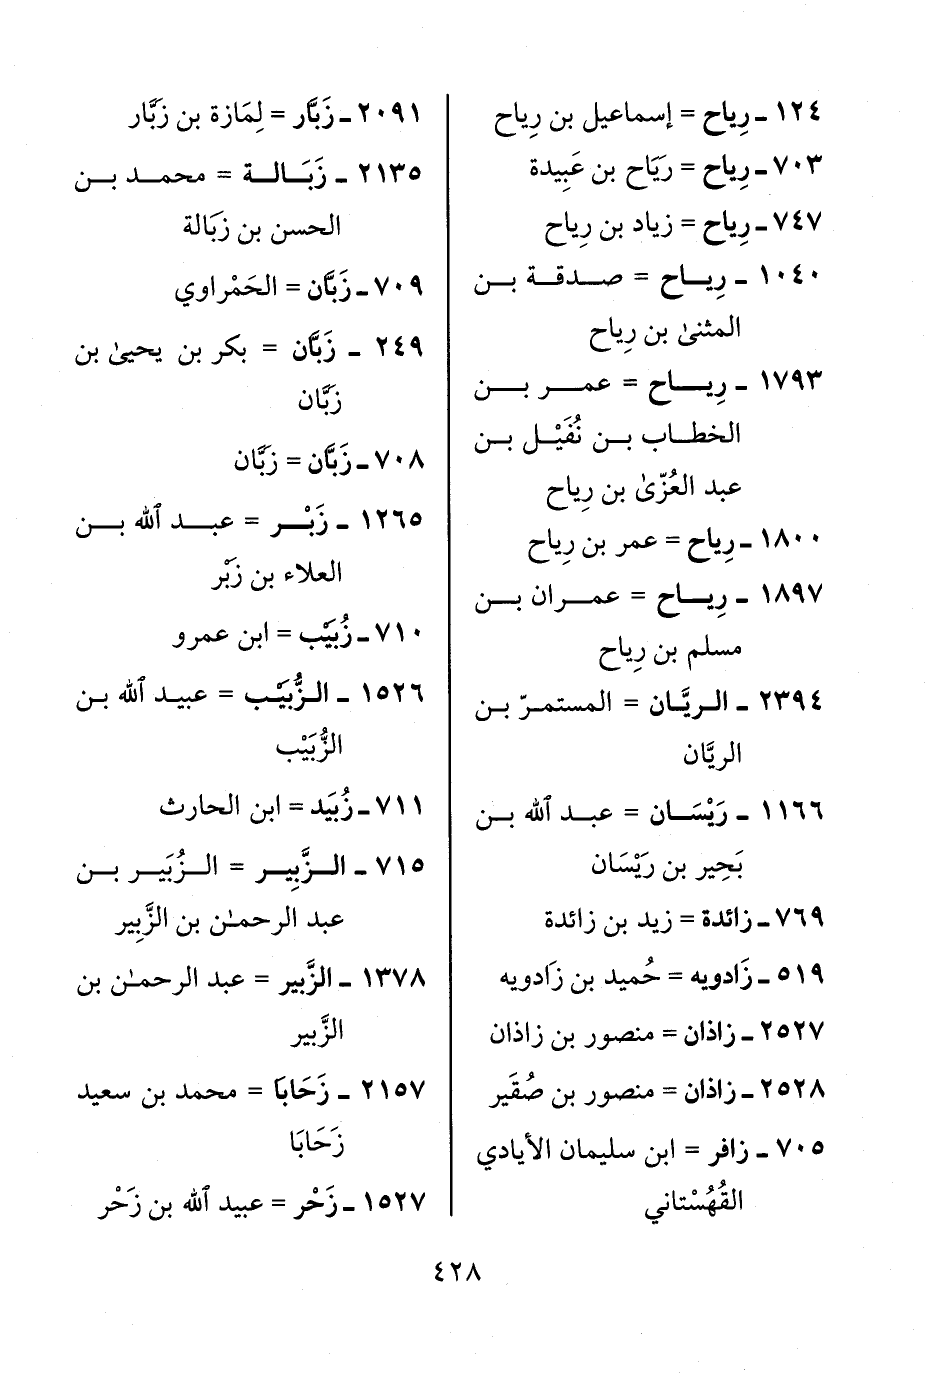 ١٢٤ ـ رِياح = إسماعيل بن رِياح
٧٠٣ ـ رِياح = رَيَاح بن عَبِيدة
٧٤٧ ـ رِياح = زياد بن رِياح
١٠٤٠ ـ رِيـاح = صـدقـة بـن
المثنىٰ بن رِياح
١٧٩٣ ـ رِيـاح = عمـر بـن
الخطـاب بـن نُفَيْـل بـن
عبد العُزّىٰ بن رِياح
١٨٠٠ ـ رِياح = عمر بن رِياح
١٨٩٧ ـ رِيـاح = عمـران بـن
مسلم بن رِياح
٢٣٩٤ ـ الـريَّـان = المستمـرّ بـن
الريَّان
١١٦٦ ـ رَيْسَـان = عبـد ٱلله بـن
بَحِير بن رَيْسَان
٧٦٩ ـ زائدة = زيد بن زائدة
٥١٩ ـ زَادويه = حُميد بن زَادويه
٢٥٢٧ ـ زاذان = منصور بن زاذان
٢٥٢٨ ـ زاذان = منصور بن صُقَير
٧٠٥ ـ زافر = ابن سليمان الأيادي
القُهُسْتاني
٢٠٩١ ـ زَبَّار = لِمَازة بن زبَّار
٢١٣٥ ـ زَبَـالـة = محمـد بـن
الحسن بن زبَالة
٧٠٩ ـ زَبَّان = الحَمْراوي
٢٤٩ ـ زَبَّان = بكر بن يحيىٰ بن
زَبَّان
٧٠٨ ـ زَبَّان = زبَّان
١٢٦٥ ـ زَبْـر = عبـد ٱلله بـن
العلاء بن زَبْر
٧١٠ ـ زُبَيْب = ابن عمرو
١٥٢٦ ـ الـزُّبَيْـب = عبيـد ٱلله بـن
الزُّبَيْب
٧١١ ـ زُبَيَد = ابن الحارث
٧١٥ ـ الـزَّبِيـر = الـزُبَيـر بـن
عبد الرحمـٰن بن الزَّبِير
١٣٧٨ ـ الزَّبير = عبد الرحمـٰن بن
الزَّبير
٢١٥٧ ـ زَحَابَا = محمد بن سعيد
زَحَابَا
١٥٢٧ ـ زَحْر = عبيد ٱلله بن زَحْر
٤٢٨